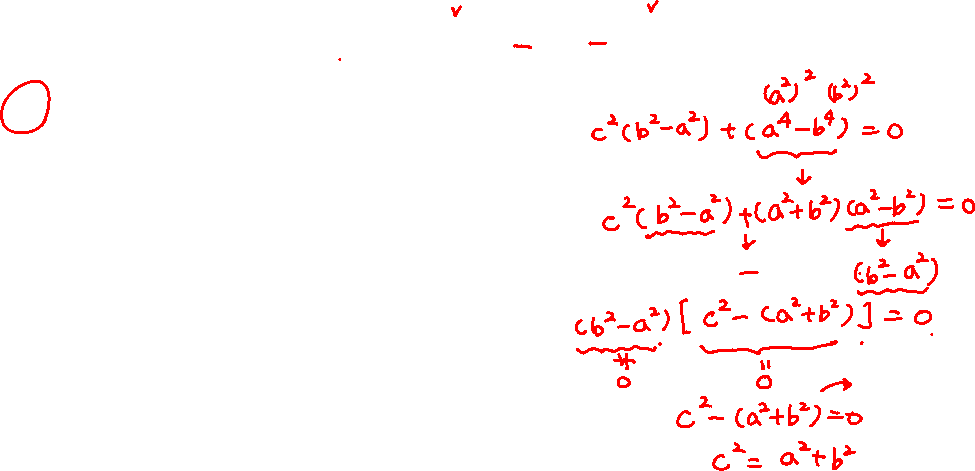 (a²)² (b²)²
c²(b²-a²)+(a⁴-b⁴)=0
↓
c²(b²-a²)+(a²+b²)(a²-b²)=0
↓ ↓
- (b²-a²)
(b²-a²)[c²-(a²+b²)]=0
≠ =
0 0
c²-(a²+b²)=0
c²= a²+b²